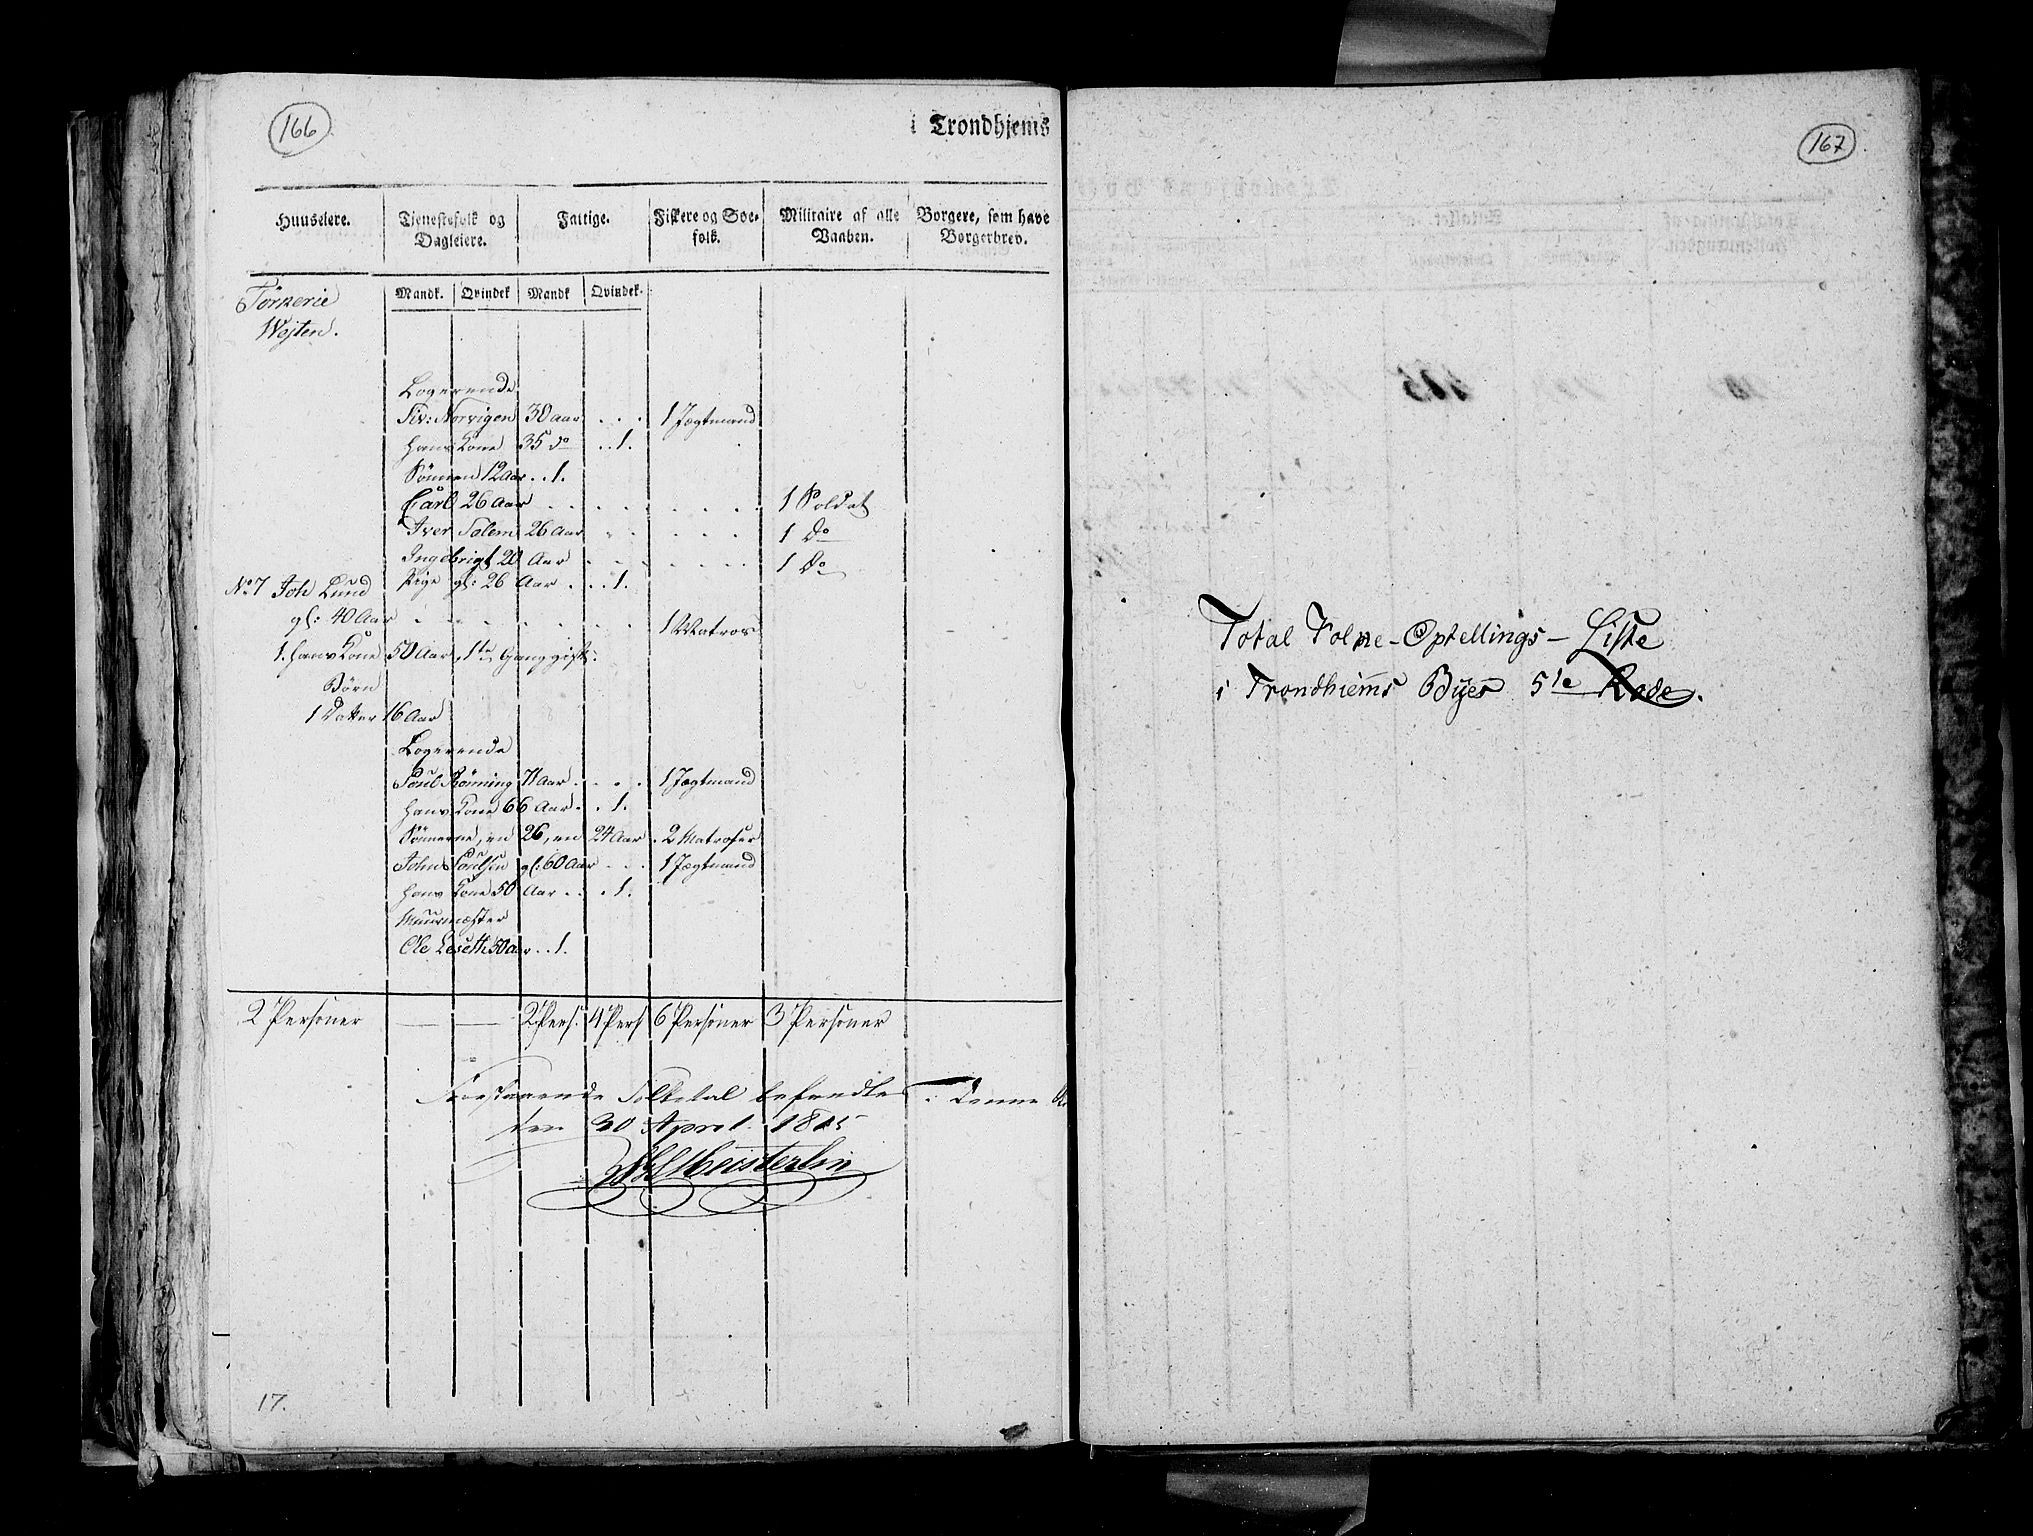 166
i Trondhjems
Huuseiere. Tienestefolk og Dagleiere. Fattige. Fiskere og Søefolk. Militaire af alle Vaaben. Borgere, som have Borgerbrev.
Mandk. Qvindek Mandk Qvindek.
Wejten.
Logerende
Siv: Norvigen 30 Aar . . . 1 Jægtmand
Hans Kone 35 do . . 1.
Sønnen 12 Aar . . 1.
Carl 26 Aar . . . . . . . 1 Soldat
Iver Salem 26 Aar . . . . . 1 Do
Ingebrigt 20 Aar . . . . . . 1 Do
Pige gl: 26 Aar . . . 1.
No 7 Joh Lund
gl: 40 Aar . . . . . . . 1 Matros
1. Hans Kone 50 Aar, 1te Gang gift.
Børn
1 Datter 16 Aar
Logerende
Poul Rønning 71 Aar . . . . 1 Jægtmand
Hans Kone 66 Aar . . 1.
Sønnerne, en 26, en 24 Aar . 2 Matroser
John Poulsen gl: 60 Aar . . . 1 Jægtmand
Hans Kone 50 Aar . . . 1.
Muurmester
Ole Leseth 50 Aar . . 1.
2 Personer — — 2 Pers. 4 Pers 6 Personer 3 Personer
Forestaaende Folketal befandtes i Denne
den 30 April 1815
Meisterlin
17.
167
Total Folke-Optellings-Liste
i Trondhiems Byes 5te Rode.